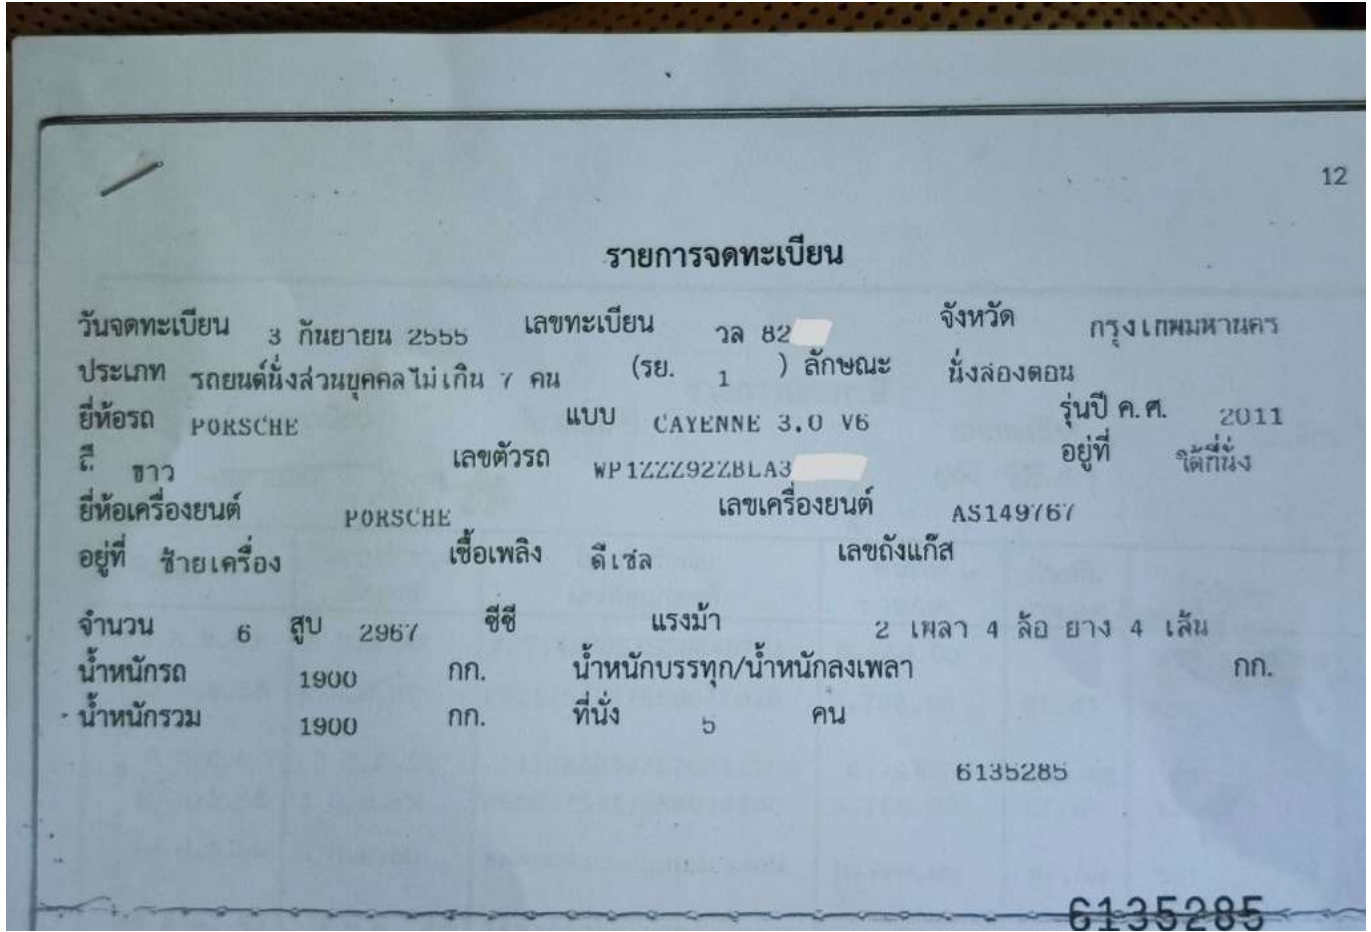 12
รายการจดทะเบียน
วันจดทะเบียน 3 กันยายน 2555 เลขทะเบียน วล 82 จังหวัด กรุงเทพมหานคร
ประเภท รถยนต์นั่งส่วนบุคคลไม่เกิน 7 คน (รย. 1 ) ลักษณะ นั่งสองตอน
ยี่ห้อรถ PORSCHE แบบ CAYENNE 3.0 V6 รุ่นปี ค.ศ. 2011
สี ขาว เลขตัวรถ WP1ZZZ92ZBLA3 อยู่ที่ ใต้ที่นั่ง
ยี่ห้อเครื่องยนต์ PORSCHE เลขเครื่องยนต์ AS149767
อยู่ที่ ซ้ายเครื่อง เชื้อเพลิง ดีเซล เลขถังแก๊ส
จำนวน 6 สูบ 2967 ซีซี แรงม้า 2 เพลา 4 ล้อ ยาง 4 เส้น
น้ำหนักรถ 1900 กก. น้ำหนักบรรทุก/น้ำหนักลงเพลา กก.
น้ำหนักรวม 1900 กก. ที่นั่ง 5 คน
6135285
6135285